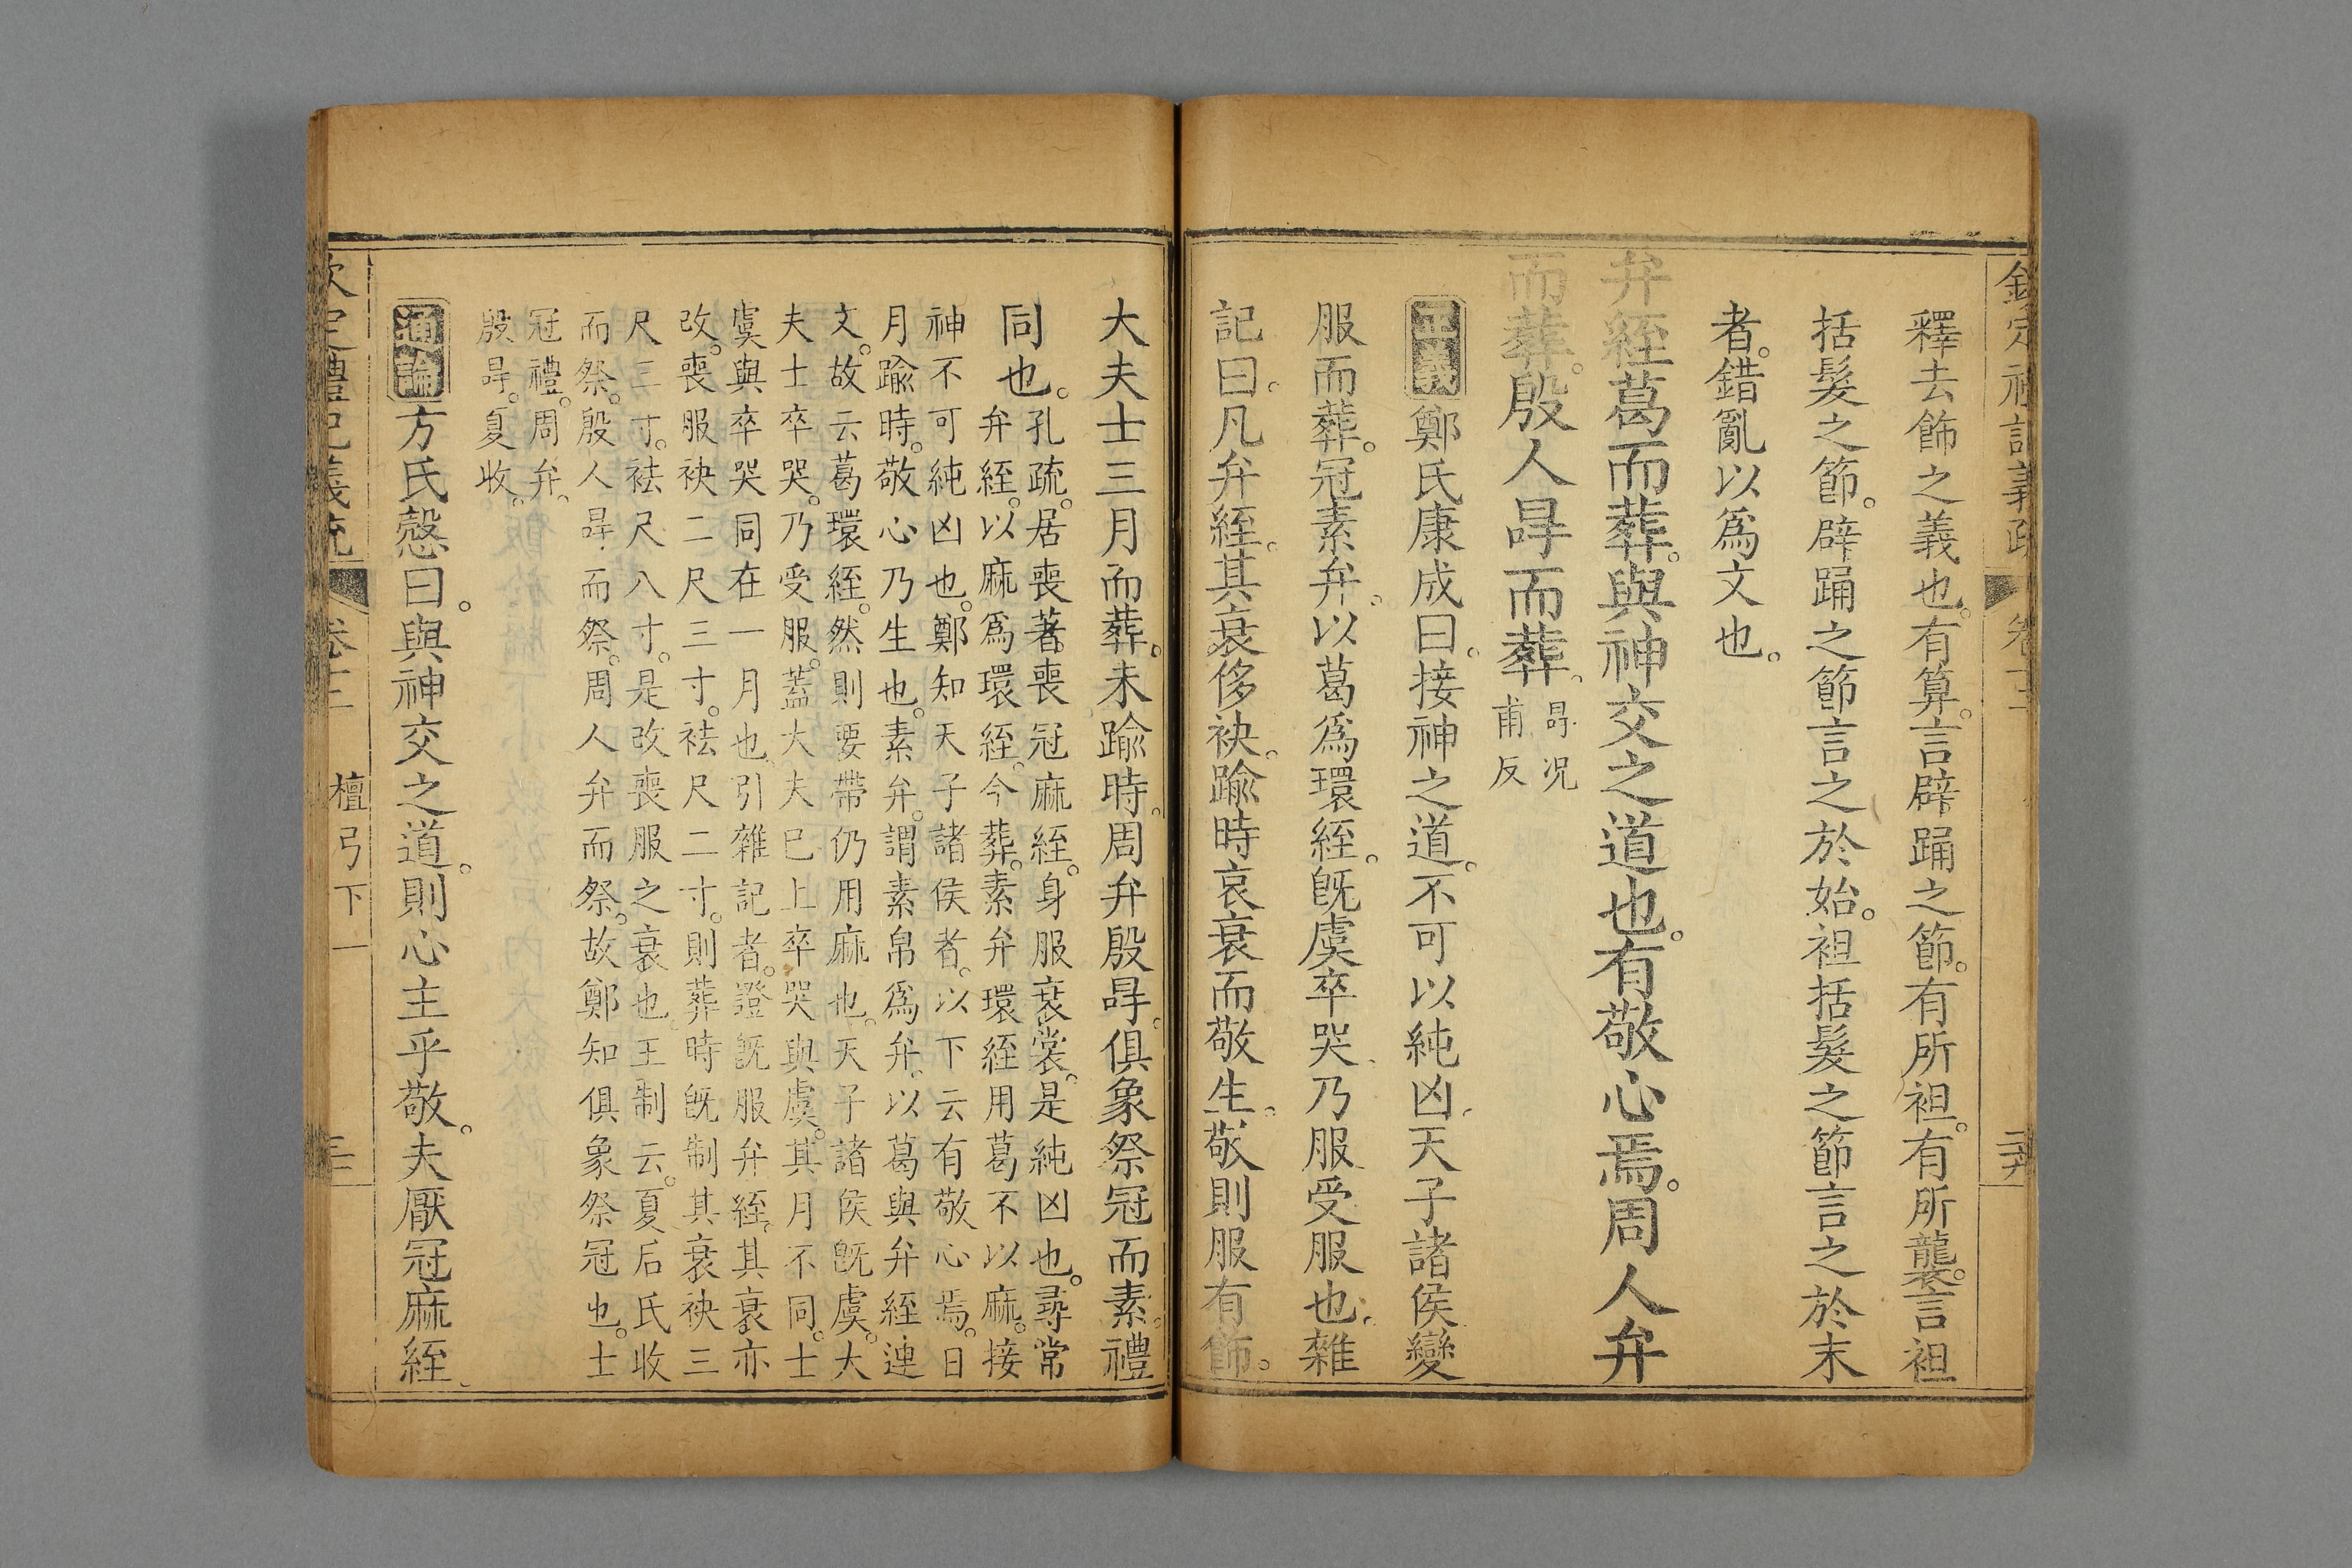 釋去飾之義也。有算。言辟踊之節。有所袒。有所襲。言袒
括髮之節。辟踊之節言之於始。袒括髮之節言之於末
者。錯亂以爲文也。
弁絰葛而葬。與神交之道也。有敬心焉。周人弁
而葬。殷人冔而葬。
冔況
甫反
正義鄭氏康成曰。接神之道。不可以純凶。天子諸侯變
服而葬。冠素弁。以葛爲環絰。旣虞卒哭。乃服受服也。雜
記曰。凡弁絰。其衰侈袂。踰時哀衰而敬生。敬則服有飾。
大夫士三月而葬。未踰時。周弁殷冔。俱象祭冠而素。禮
同也。
孔疏。居喪著喪冠麻絰。身服衰裳。是純凶也。尋常
弁絰。以麻爲環絰。今葬。素弁環絰用葛不以麻。接
神不可純凶也。鄭知天子諸侯者。以下云有敬心焉。日
月踰時。敬心乃生也。素弁。謂素帛爲弁。以葛與弁絰連
文。故云葛環絰。然則要帶仍用麻也。天子諸侯旣虞。大
夫士卒哭。乃受服。蓋大夫已上卒哭與虞。其月不同。士
虞與卒哭同在一月也。引雜記者。證旣服弁絰。其衰亦
改。喪服袂二尺三寸。袪尺二寸。則葬時旣制其衰袂三
尺三寸。袪尺八寸。是改喪服之衰也。王制云。夏后氏收
而祭。殷人冔而祭。周人弁而祭。故鄭知俱象祭冠也。士
冠禮。周弁。
殷冔。夏收。
通論方氏慤曰。與神交之道。則心主乎敬。夫厭冠麻絰。
檀弓下一